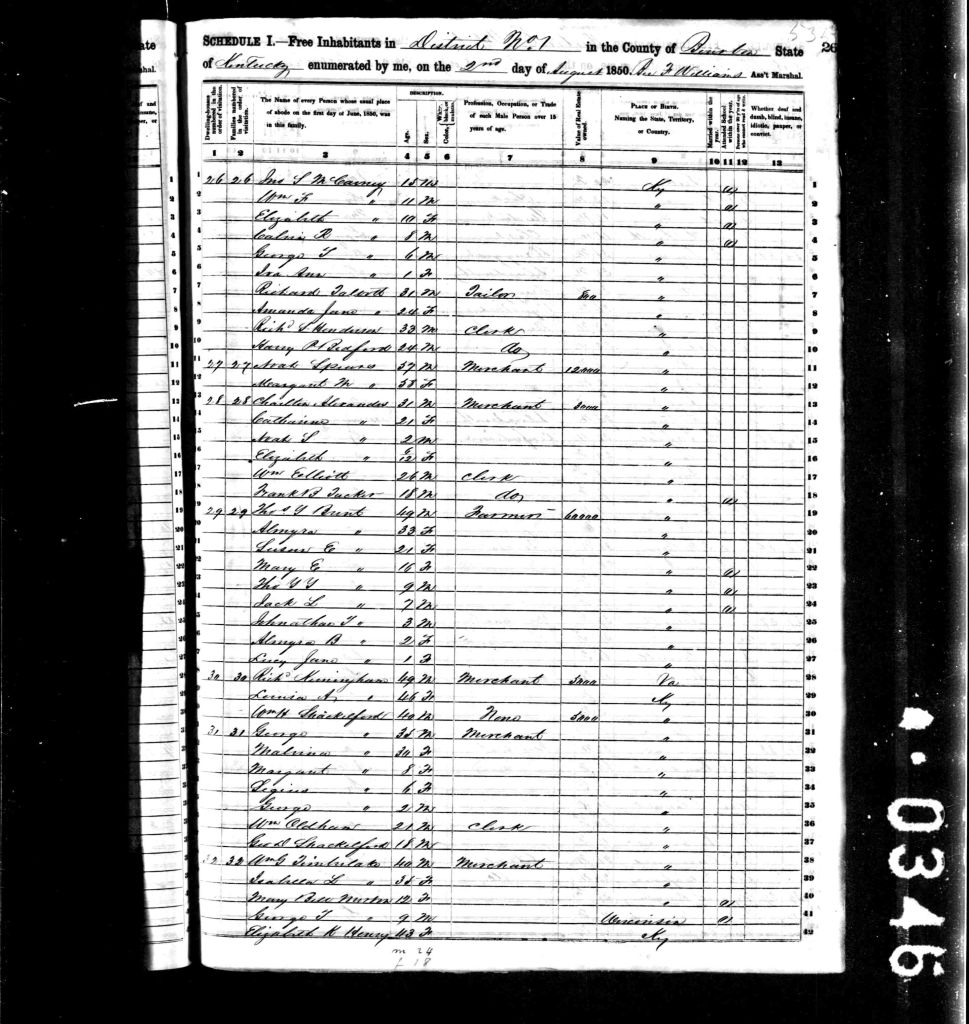 53
SCHEDULE I.—Free Inhabitants in District No 1 in the County of State 26
of Kentucky enumerated by me, on the 2nd day of August 1850. F Williams Ass't Marshal.
Dwelling-houses numbered in the order of visitation.
Families numbered in the order of visitation.
The Name of every Person whose usual place of abode on the first day of June, 1850, was in this family.
DESCRIPTION.
Age.
Sex.
Color, White, black, or mulatto.
Profession, Occupation, or Trade of each Male Person over 15 years of age.
Value of Real Estate owned.
PLACE OF BIRTH. Naming the State, Territory, or Country.
Married within the year.
Attended School within the year.
Persons over 20 y'rs of age who cannot read & write.
Whether deaf and dumb, blind, insane, idiotic, pauper, or convict.
1 2 3 4 5 6 7 8 9 10 11 12 13
1 26 26 Jno S McCarney 15 M Ky 1
2 Wm F " 11 M " 2
3 Elizabeth " 10 F " 3
4 Calvin R " 8 M " 4
5 George T " 6 M " 5
6 Ann " 1 F " 6
7 Richard Talbott 31 M Tailor " 7
8 Amanda Jane " 24 F " 8
9 Richd S Henderson 33 M Clerk " 9
10 Harry P Bedford 24 M do " 10
11 27 27 Noah Spears 37 M Merchant 12000 " 11
12 Margaret M " 38 F " 12
13 28 28 Charlton Alexander 31 M Merchant 3000 " 13
14 Catharine " 21 F " 14
15 Noah S " 2 M " 15
16 Elizabeth " F " 16
17 Wm Elliott 26 M Clerk " 17
18 Frank B Tucker 18 M do " 18
19 29 29 Thos Y Brent 49 M Farmer 60000 " 19
20 Almyra " 33 F " 20
21 Susan E " 21 F " 21
22 Mary E " 16 F " 22
23 Tho Y " 9 M " 23
24 Jack L " 7 M " 24
25 Johnathan T " 3 M " 25
26 Almyra B " 2 F " 26
27 Lucy Jane " 1 F " 27
28 30 30 Richd 49 M Merchant 3000 Va 28
29 Louisa A " 46 F Ky 29
30 Wm H Shackelford 40 M None 5000 " 30
31 31 31 George " 35 M Merchant " 31
32 Malvina " 30 F " 32
33 Margaret " 8 F " 33
34 " 6 F " 34
35 George " 2 M " 35
36 Wm Oldham 21 M Clerk " 36
37 Geo D Shackelford 18 M " 37
38 32 32 Wm G Timberlake 40 M Merchant " 38
39 Isabella L " 35 F " 39
40 Mary Bell 12 F " 40
41 George T " 9 M 41
42 Elizabeth K Henry 43 F Ky 42
m 24
f 18
0346